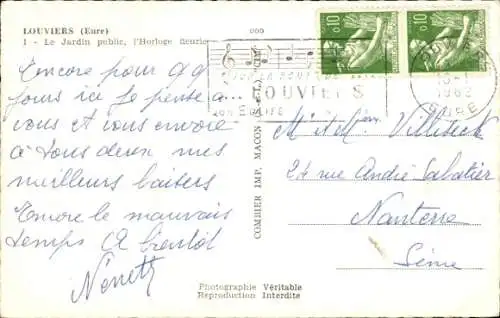 LOUVIERS (Eure)
1 - Le Jardin public, l'Horloge fleurie
Encore pour qq
jours ici Je pense à...
vous et vous envoie
à tous deux mes
meilleurs baisers
Encore le mauvais
temps A bientôt
Nénette
COMBIER IMP. MACON (S.-&-L.)
Photographie Véritable
Reproduction Interdite
0,10
0,10
LOUVIERS
EURE
M. et Mme Villibeck
24 rue André Sabatier
Nanterre
Seine